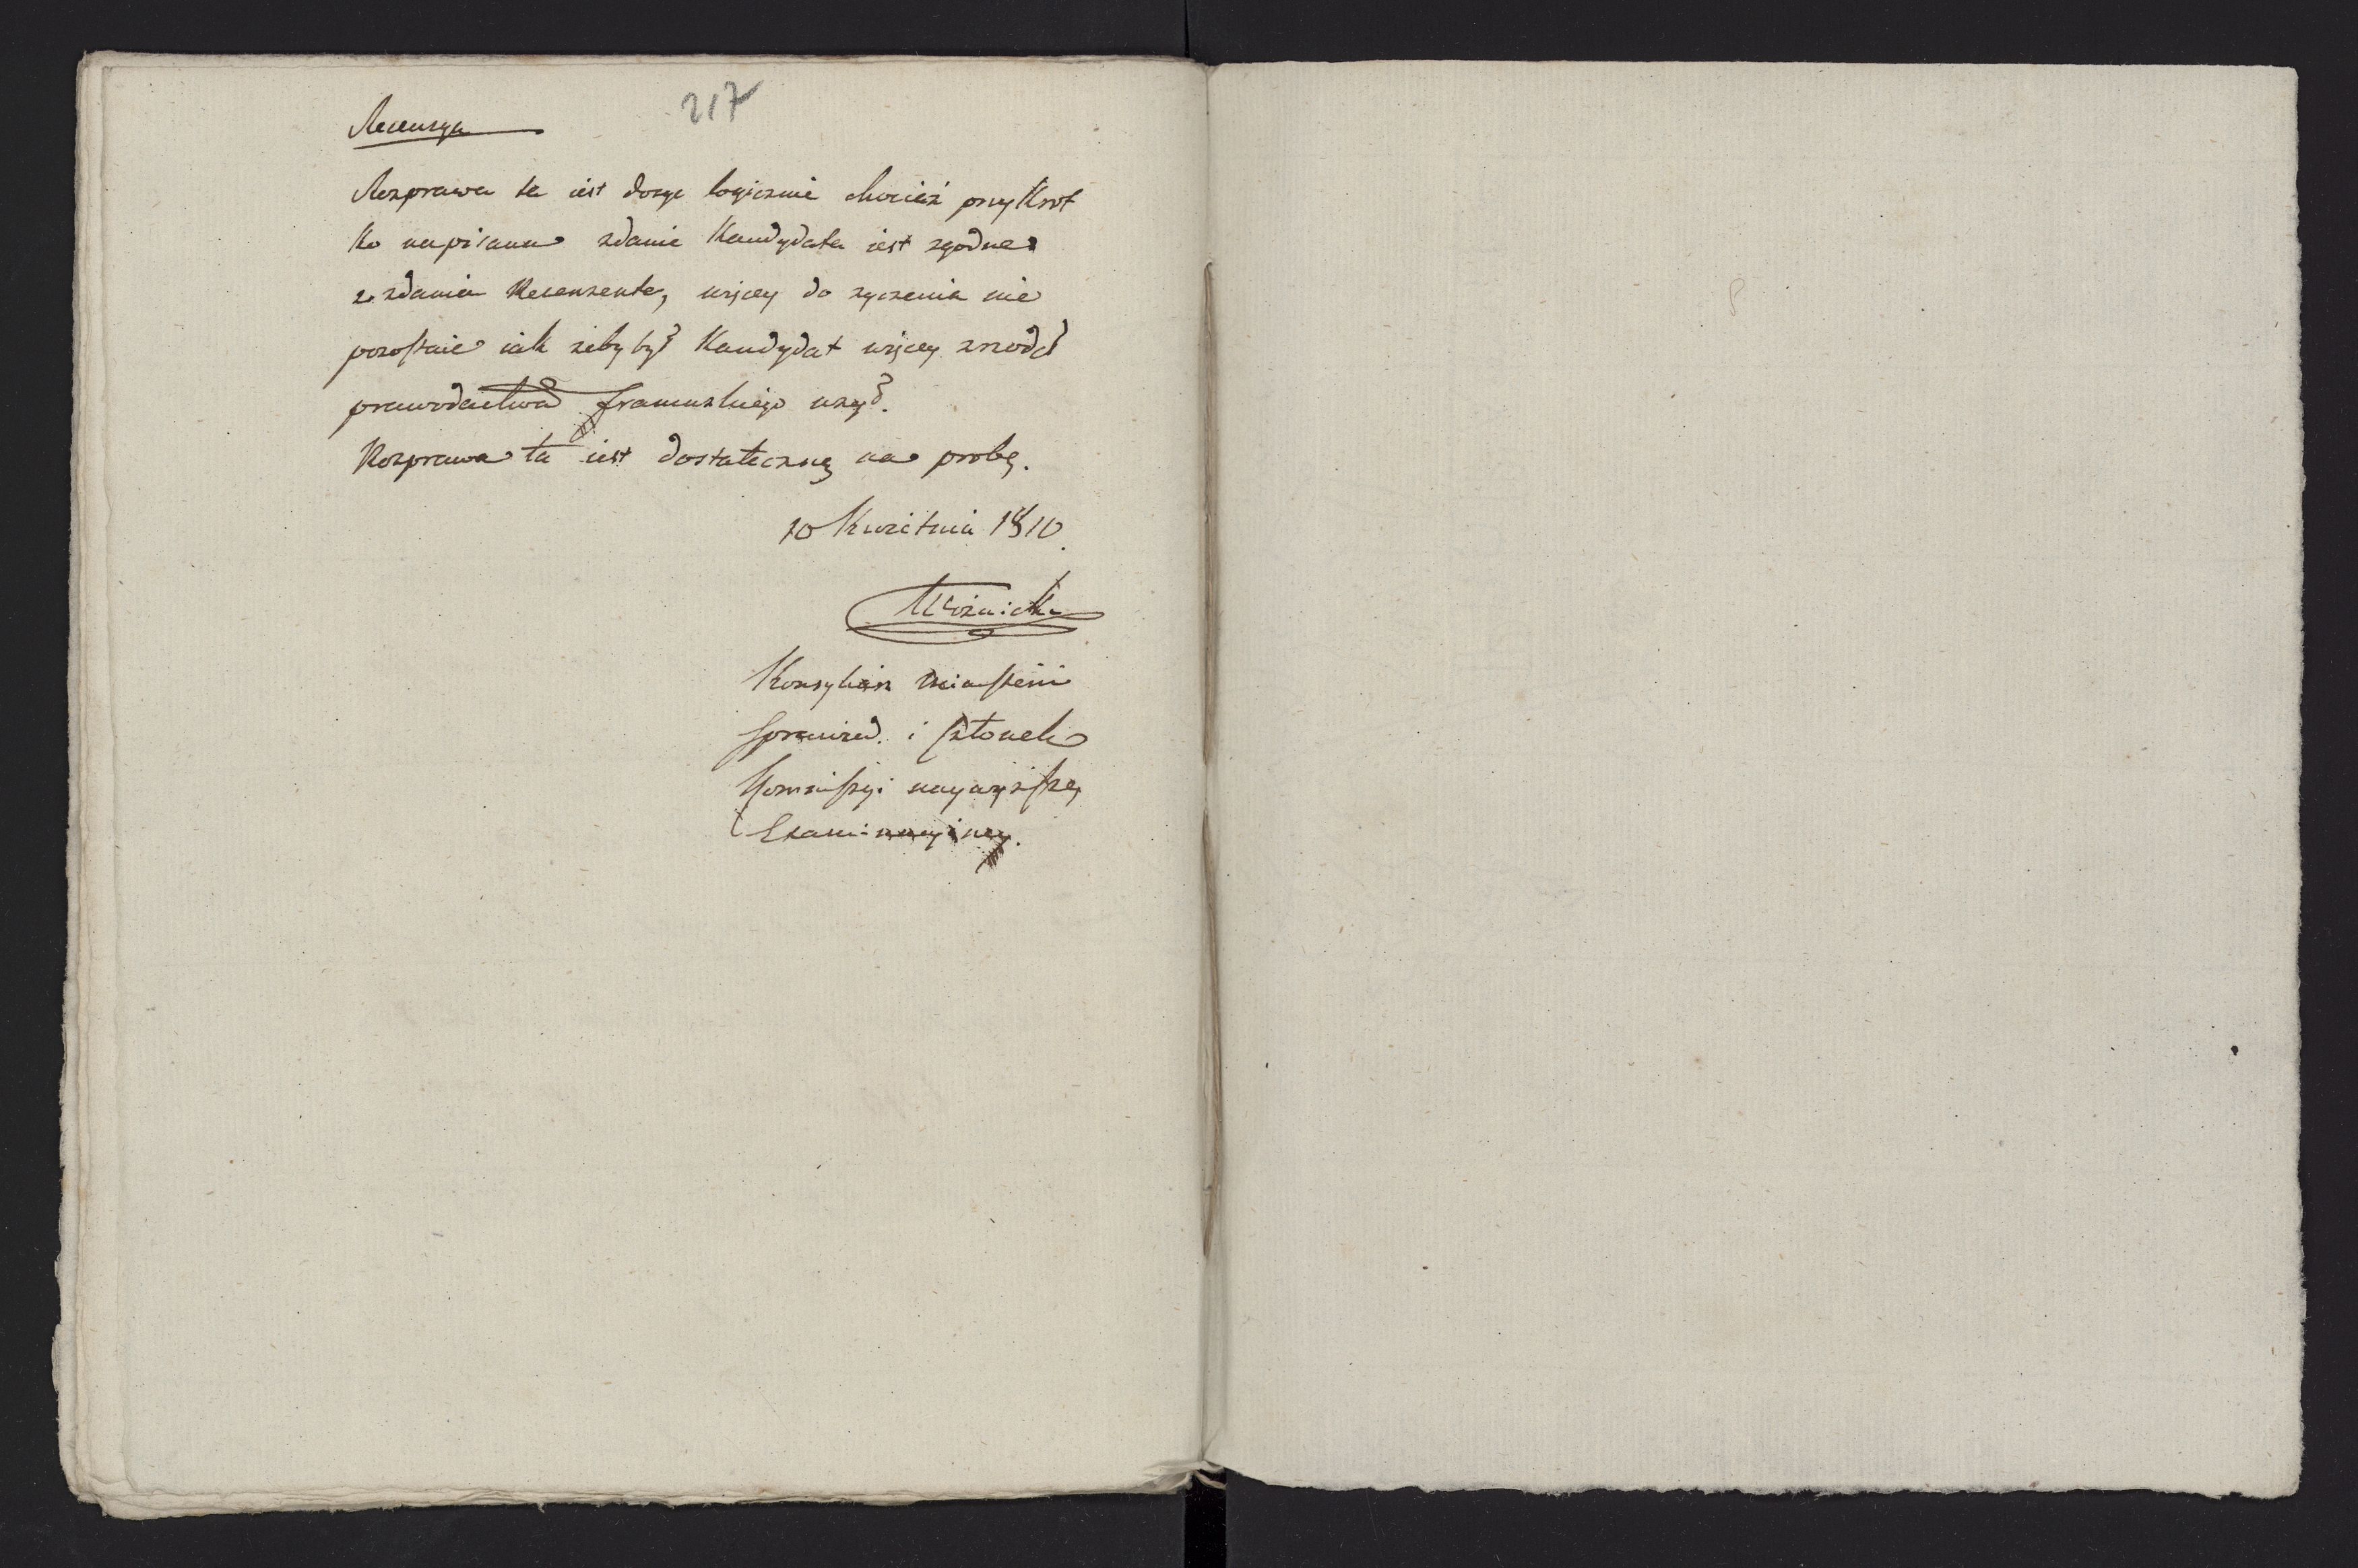 217
Recenzya
Rozprawa ta iest dosyc logicznie chociaż przykrot
ko napisana zdanie Kandydata iest zgodne
z zdania Recenzenta, więcey do zyczenia nie
pozostaie iak żeby był Kandydat więcey zrodeł
prawodactwa francuzkiego użył.
Rozprawa ta iest dostateczną na probę.
10 Kwietnia 1810.
Woźnicki
Konsyliarz Ministerii
Sprawied. i Członek
Kommissyi naywyższey
Examinacyiney.